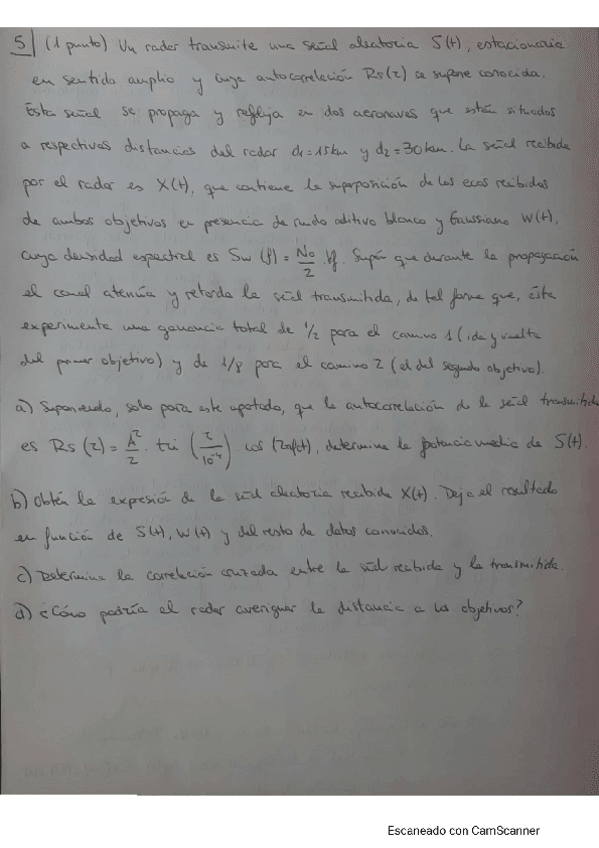 5| (1 punto) Un radar transmite una señal aleatoria S(t), estacionaria
en sentido amplio y cuya autocorrelación Rs(τ) se supone conocida.
Esta señal se propaga y refleja en dos aeronaves que están situados
a respectivas distancias del radar d1=15km y d2=30km. La señal recibida
por el radar es X(t), que contiene la superposición de los ecos recibidos
de ambos objetivos en presencia de ruido aditivo blanco y Gaussiano W(t),
cuya densidad espectral es Sw(f) = No/2 ∀f. Supón que durante la propagación
el canal atenúa y retarda la señal transmitida, de tal forma que, ésta
experimenta una ganancia total de 1/2 para el camino 1 (ida y vuelta
del primer objetivo) y de 1/8 para el camino 2 (el del segundo objetivo).
a) Suponiendo, solo para este apartado, que la autocorrelación de la señal transmitida
es Rs(τ) = A²/2 · tri(τ/10⁻⁴) cos(2πfcτ), determine la potencia media de S(t).
b) Obtén la expresión de la señal aleatoria recibida X(t). Deja el resultado
en función de S(t), W(t) y del resto de datos conocidos.
c) Determina la correlación cruzada entre la señal recibida y la transmitida.
d) ¿Cómo podría el radar averiguar la distancia a los objetivos?
Escaneado con CamScanner